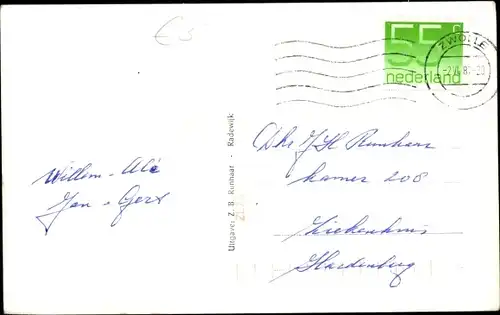 €5
55 c
nederland
ZWOLLE
Willem - Alé
Jan - Gert
Uitgave: Z. B. Runhaar - Radewijk
Dhr J H Runhaar
kamer 208
Ziekenhuis
Hardenberg